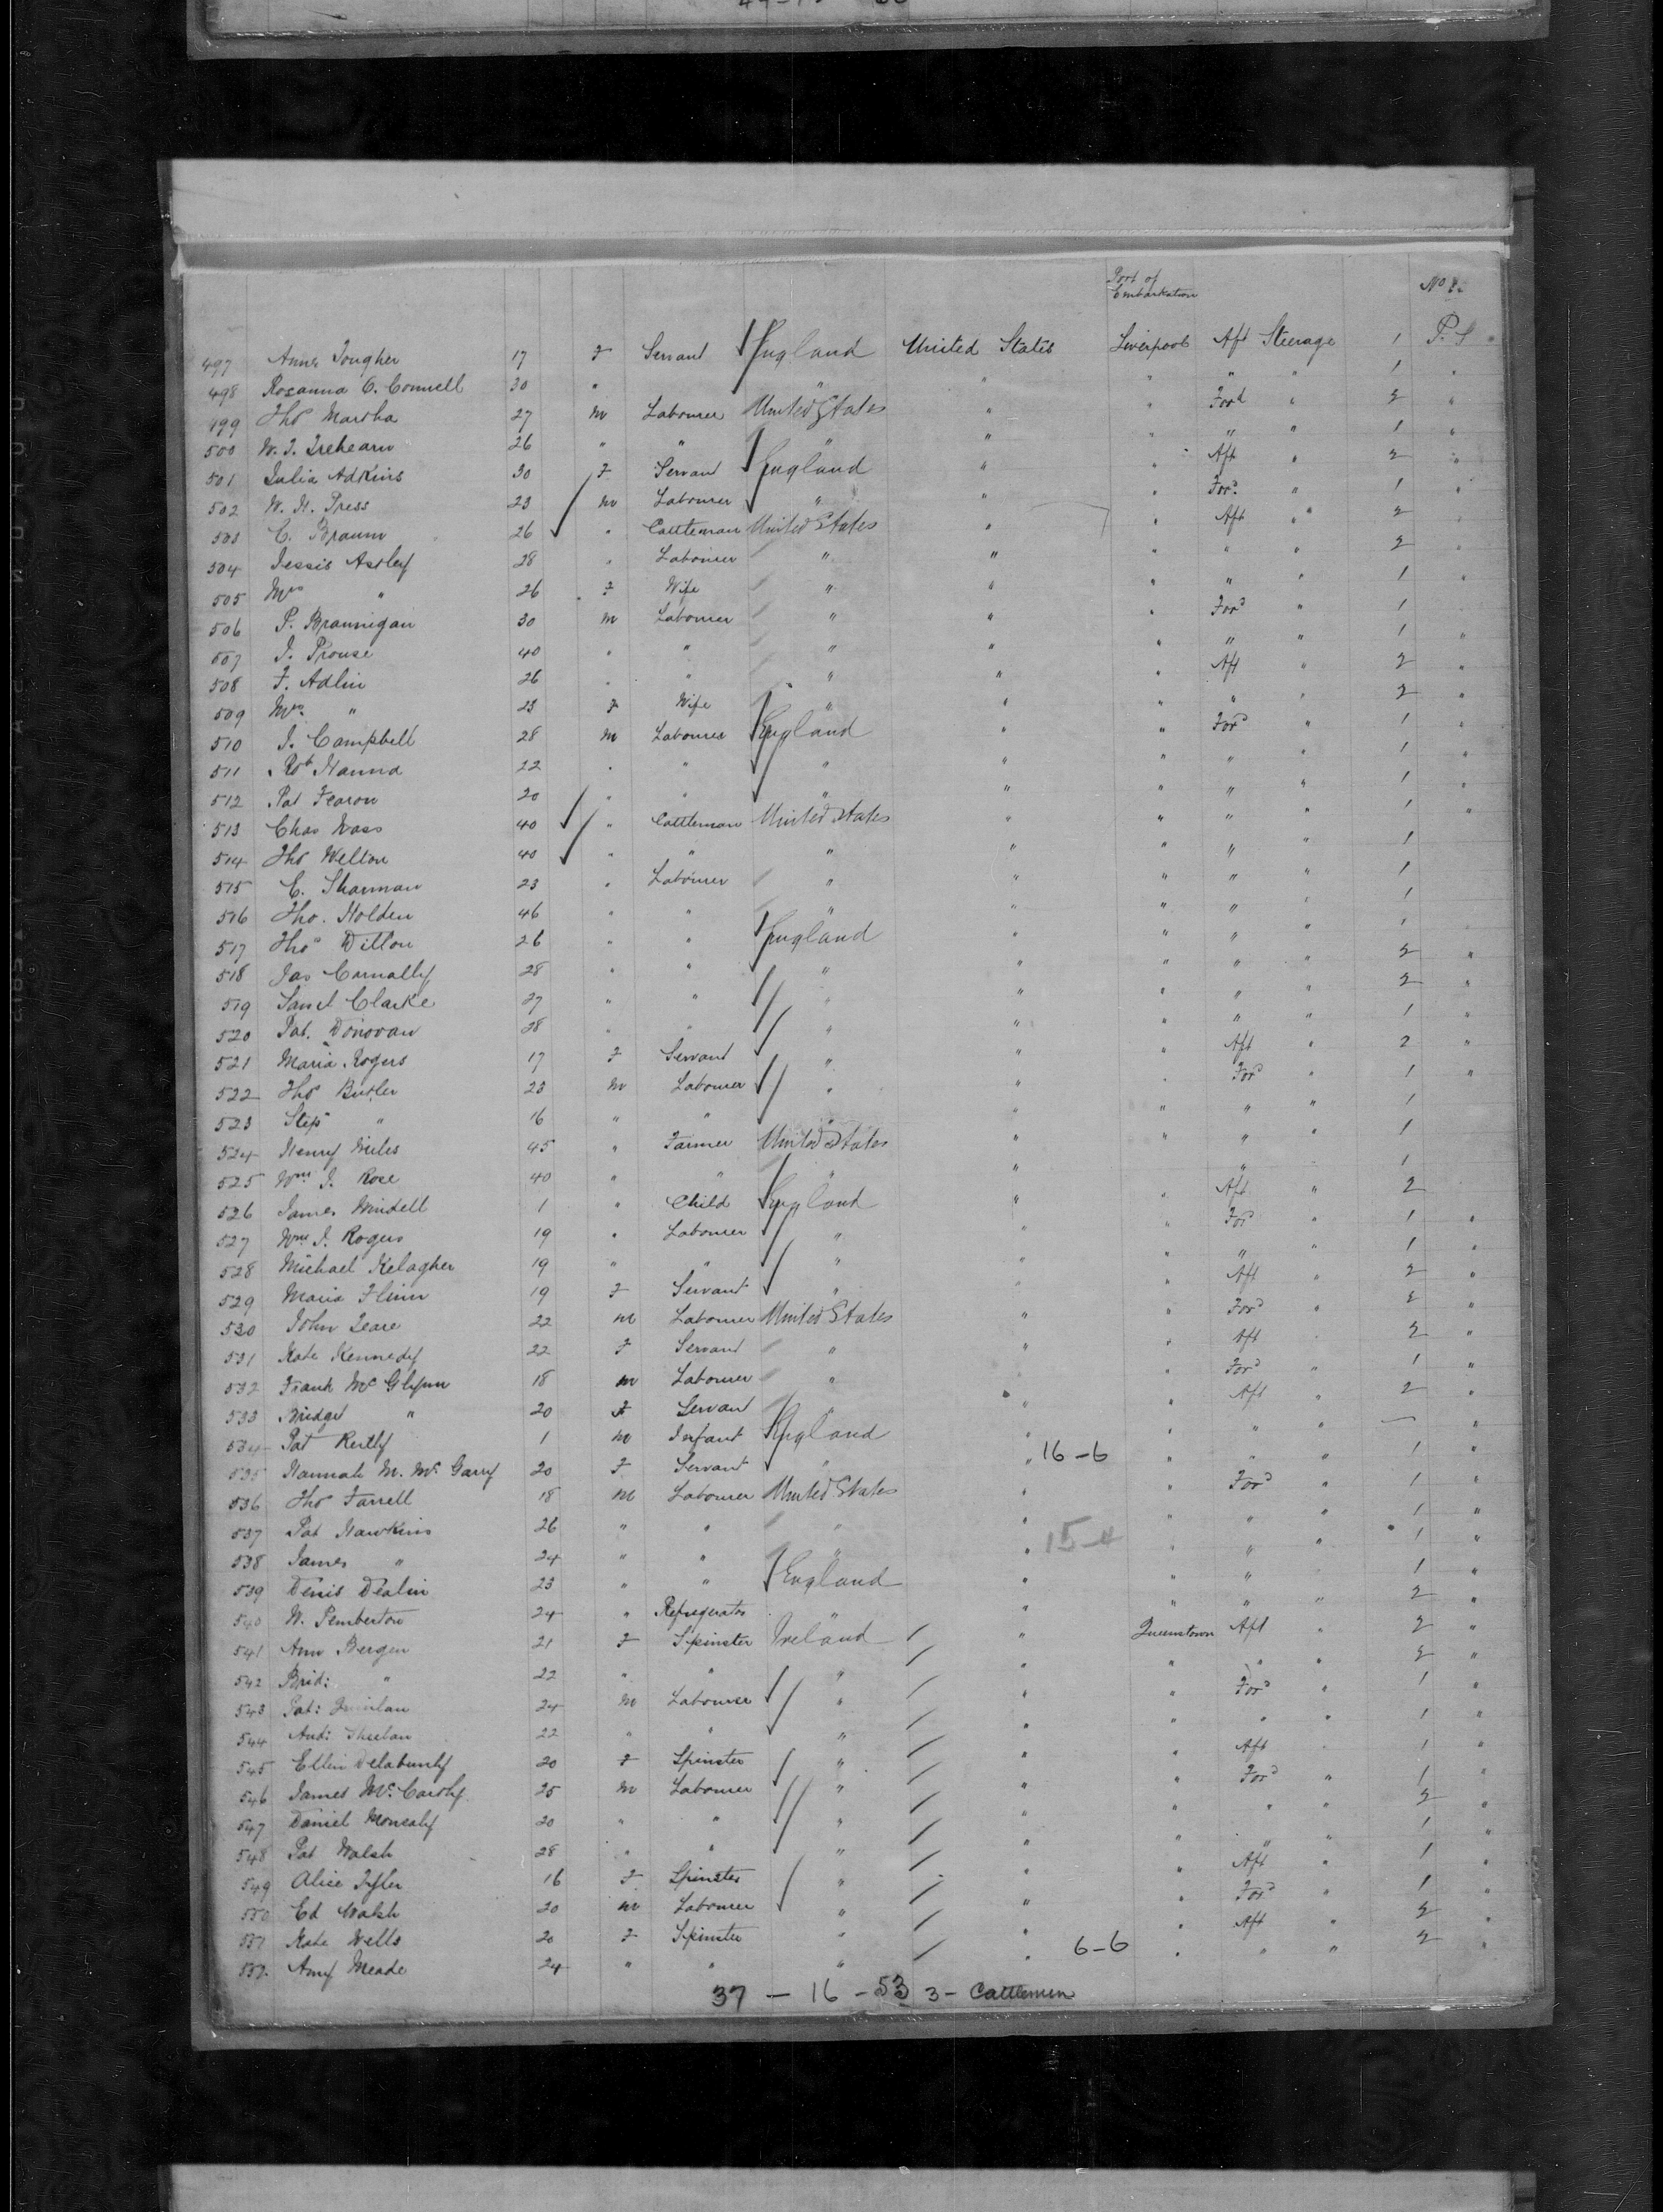 Port of
Embarkation
No 8.
497 Anne Tougher 17 F Servant England United States Liverpool Aft Steerage 1 P.S.
498 Rosanna O. Connell 30 " " " " " " " 1 "
499 Thos Martha 27 M Labourer United States " " Ford " 2 "
500 W. J. Trehearn 26 " " " " " " " 1 "
501 Julia Adkins 30 F Servant England " " Aft " 2 "
502 W. H. Press 23 M Labourer " " " Ford " 1 "
503 C. Braum 26 " Cattleman United States " " Aft " 2
504 Jessis Astley 28 " Labourer " " " " " 2 "
505 Mrs " 26 F Wife " " " " " 1 "
506 P. Brannigan 30 M Labourer " " " Ford " 1
507 J. Prouse 40 " " " " " " " 1 "
508 F. Adlin 26 " " " " " Aft " 2 "
509 Mrs " 23 F Wife " " " " " 2 "
510 J. Campbell 28 M Labourer England " " Ford " 1 "
511 Rob Hanna 22 " " " " " " " 1 "
512 Pat Fearon 20 " " " " " " " 1 "
513 Chas Wass 40 " Cattleman United States " " " " 1 "
514 Thos Welton 40 " " " " " " " 1
515 E. Sharman 23 " Labourer " " " " " 1
516 Tho. Holden 46 " " " " " " " 1
517 Thos Dillon 26 " " England " " " " 1
518 Jas Connally 28 " " " " " " " 2 "
519 Saml Clarke 27 " " " " " " " 2 "
520 Pat. Donovan 28 " " " " " " " 1 "
521 Maria Rogers 17 F Servant " " " Aft " 2 "
522 Thos Butler 23 M Labourer " " " Ford " 1 "
523 Step " 16 " " " " " " " 1
524 Henry Miles 45 " Farmer United States " " " " 1
525 Wm J. Rose 40 " " " " " " 1
526 James Mindell 1 " Child England " " Aft " 2
527 Wm J. Rogers 19 " Labourer " " " Ford " 1 "
528 Michael Kelagher 19 " " " " " " " 1 "
529 Maria Flinn 19 F Servant " " " Aft " 2 "
530 John Leare 22 M Labourer United States " " Ford " 2 "
531 Kate Kennedy 22 F Servant " " " Aft " 2 "
532 Frank McGlynn 18 M Labourer " " " Ford " 1 "
533 Bridget " 20 F Servant " " Aft " 2 "
534 Pat Reilly 1 M Infant England " " " " — "
535 Hannah M. McGarry 20 F Servant " " 16-6 " " " 1 "
536 Thos Farrell 18 M Labourer United States " " Ford " 1 "
537 Pat Hawkins 26 " " " " " " " 1 "
538 James " 24 " " " " 15-4 " " " 1 "
539 Denis Dealin 23 " " England " " " " 1 "
540 W. Pemberton 24 " Refrigerator " " " " 2 "
541 Ann Bergin 21 F Spinster Ireland " Queenstown Aft " 2 "
542 Brid: " 22 " " " " " " " 2 "
543 Pat: Quinlan 24 M Labourer " " " Ford " 1 "
544 And: Sheelan 22 " " " " " " " 1 "
545 Ellen Delahunty 20 F Spinster " " " Aft " 1 "
546 James McCarthy 25 M Labourer " " " Ford " 1 "
547 Daniel 20 " " " " " " " 2 "
548 Pat Walsh 28 " " " " " " " 1 "
549 Alice Tyler 16 F Spinster " " " Aft " 1 "
550 Ed Walsh 20 M Labourer " " " Ford " 1 "
551 Kate Wells 20 F Spinster " " " Aft " 2 "
552 Amy Meade 24 " " " " 6-6 " " " 2 "
37 - 16 - 53 3 - Cattlemen